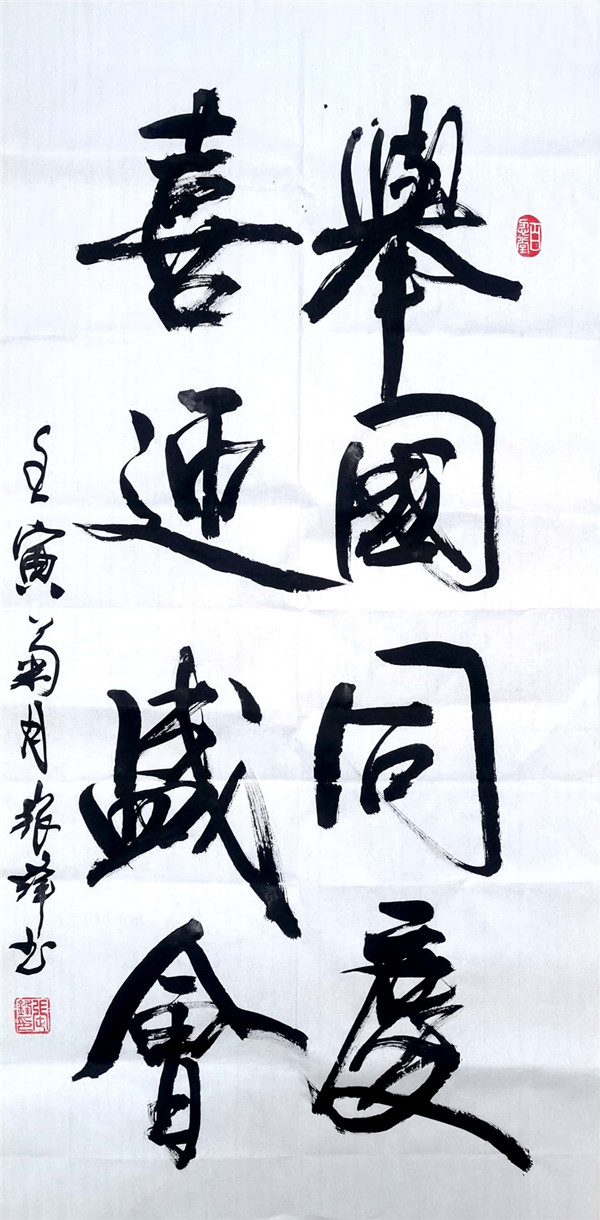 舉國同慶
喜迎盛會
壬寅菊月振鋒书